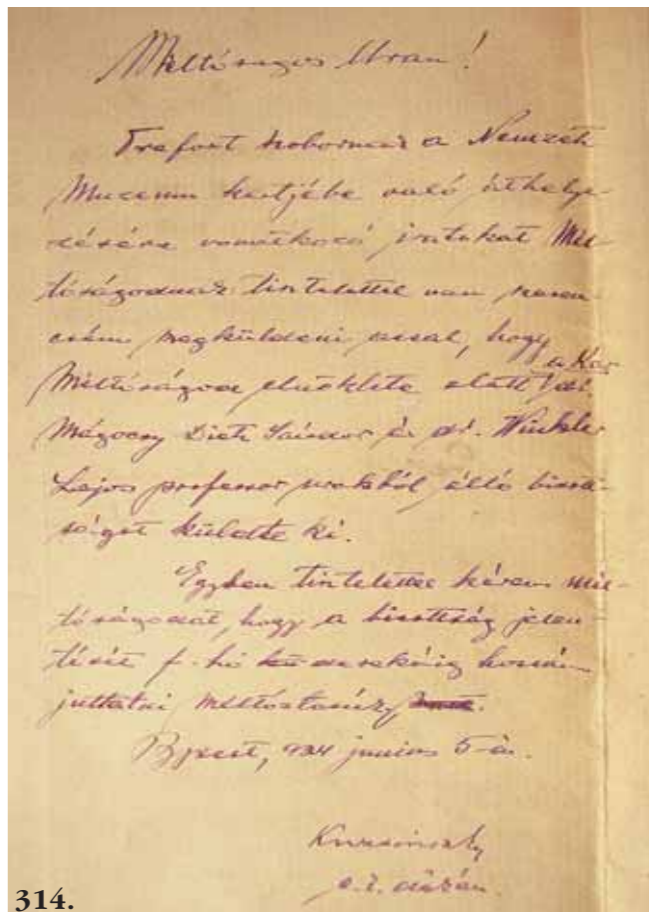 Méltóságos Uram!
Trefort szobornak a Nemzeti
Museum kertjébe való áthelye-
zésére vonatkozó iratokat Mél-
tóságodnak tisztelettel van szeren-
csém megküldeni azzal, hogy
a Kar
Méltóságod elnöklete alatt dr.
Mágocsy Dietz Sándor és dr. Winkler
Lajos professor urakból álló bizott-
ságot küldte ki.
Egyben tisztelettel kérem Mél-
tóságodat, hogy a bizottság jelen-
tését f. hó derekáig hozzám
juttatni méltóztassék.
Bpest, 924 junius 5-én.
Kuzsinszky
e. i. dékán.
314.